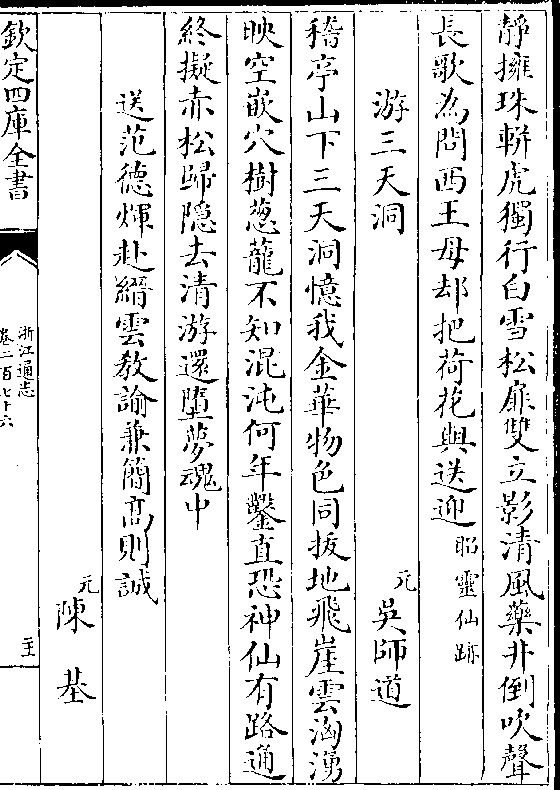 靜擁珠輧虎獨行白雪松扉雙立影清風藥井倒吹聲
長歌為問西王母却把荷花與送迎昭靈仙跡
游三天洞
元吳師道
稽亭山下三天洞憶我金華物色同拔地飛崖雲洶湧
映空嵌穴樹葱蘢不知混沌何年鑿直恐神仙有路通
終擬赤松歸隠去清游還墮夢魂中
送范德煇赴縉雲教諭兼簡髙則誠
元陳基
欽定四庫全書
浙江通志
卷二百七十六